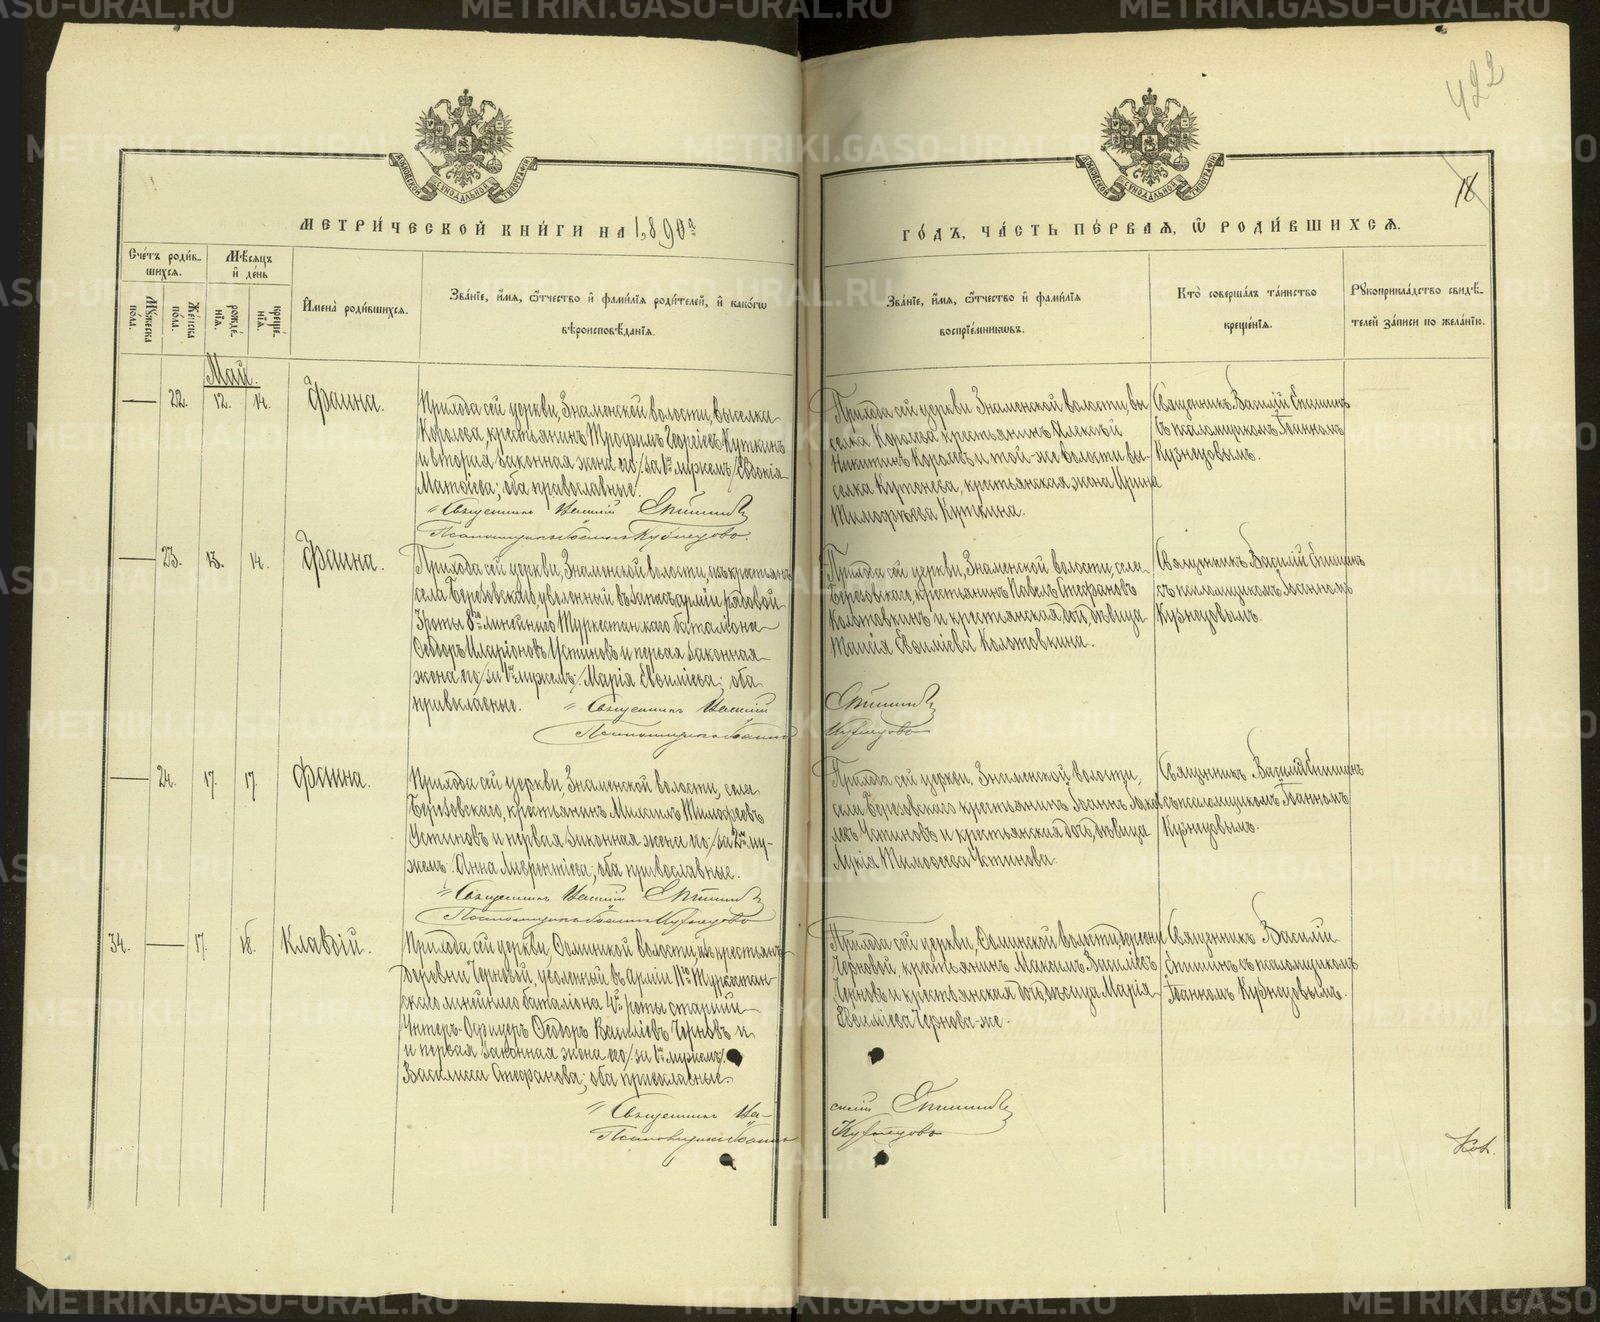 422
18
МЕТРИ́ЧЕСКОЙ КНИ́ГИ НА 1890й
ГО́ДЪ, ЧА́СТЬ ПЕ́РВАЯ, Ѡ РОДИ́ВШИХСЯ.
Сче́тъ роди́вшихся.
Мѣ́сяцъ и де́нь
Му́жеска по́ла.
Же́нска по́ла.
рожде́нія.
креще́нія.
Имена̀ роди́вшихся.
Зва́ніе, и́мя, ѻ́тчество и фами́лія роди́телей, и како́гѡ
вѣроисповѣ́данія.
Зва́ніе, и́мя, ѻ́тчество и фами́лія
воспріе́мниковъ.
Кто̀ соверша́лъ та́инство
креще́нія.
Рꙋкоприкла́дство свидѣ́-
телей за́писи по жела́нію.
Май.
— 22. 12. 14. Фаина.
Прихода сей церкви, Знаменской волости, выселка
Королева, крестьянинъ Трофимъ Георгіевъ Куткинъ
и вторая законная жена его /за 1мъ мужемъ/ Евдокія
Матѳіева; оба православные.
Священникъ Василій Епишинъ
Псаломщикъ Іоаннъ Кузнецовъ.
Прихода сей церкви Знаменской волости, вы
селка Королева крестьянинъ Алексѣй
Никитинъ Королевъ и той-же волости вы-
селка Кутенева, крестьянская жена Ирина
Тимофѣева Куткина.
Священникъ Василій Епишинъ
съ псаломщикомъ Іоанномъ
Кузнецовымъ.
— 23. 13. 14. Фаина.
Прихода сей церкви, Знаменской волости, изъ крестьянъ
села Березовскаго уволенный въ запасъ арміи рядовой
3 роты 8го линейнаго Туркестанскаго баталіона
Ѳедоръ Иларіоновъ Устиновъ и первая законная
жена его /за 1мъ мужемъ/ Марія Евѳиміева; оба
православные.
Священникъ Василій
Псаломщикъ Іоаннъ
Прихода сей церкви, Знаменской волости, села
Березовскаго, крестьянинъ Павелъ Стефановъ
Колотовкинъ и крестьянская дочь, дѣвица
Таисія Евѳиміева Колотовкина.
Епишинъ
Кузнецовъ
Священникъ Василій Епишинъ
съ псаломщикомъ Іоанномъ
Кузнецовымъ.
— 24. 17. 17. Фаина.
Прихода сей церкви, Знаменской волости, села
Березовскаго, крестьянинъ Михаилъ Тимофеевъ
Устиновъ и первая законная жена его /за 2мъ му-
жемъ/ Анна Лаврентіева; оба православные.
Священникъ Василій Епишинъ
Псаломщикъ Іоаннъ Кузнецовъ
Прихода сей церкви, Знаменской волости,
села Березовскаго крестьянинъ Іоаннъ Яков
левъ Устиновъ и крестьянская дочь, дѣвица
Лукія Тимофеева Устинова.
Священникъ Василій Епишинъ
съ псаломщикомъ Іоанномъ
Кузнецовымъ.
34. — 17. 18. Клавдій.
Прихода сей церкви, волости, изъ крестьянъ
деревни Черновой, уволенный въ арміи 11го Туркестан-
скаго линейнаго баталіона 4й роты старшій
Унтеръ-Офицеръ Ѳедоръ Василіевъ Черновъ и
и первая законная жена его /за 1мъ мужемъ/
Василисса Стефанова; оба православные.
Священникъ Ва-
Псаломщикъ Іоаннъ
Прихода сей церкви, волости, деревни
Черновой, крестьянинъ Максимъ Василіевъ
Черновъ и крестьянская дочь, дѣвица Марія
Евѳиміева Чернова-же.
силій Епишинъ
Кузнецовъ
Священникъ Василій
Епишинъ съ псаломщикомъ
Іоанномъ Кузнецовымъ.
METRIKI.GASO-URAL.RU